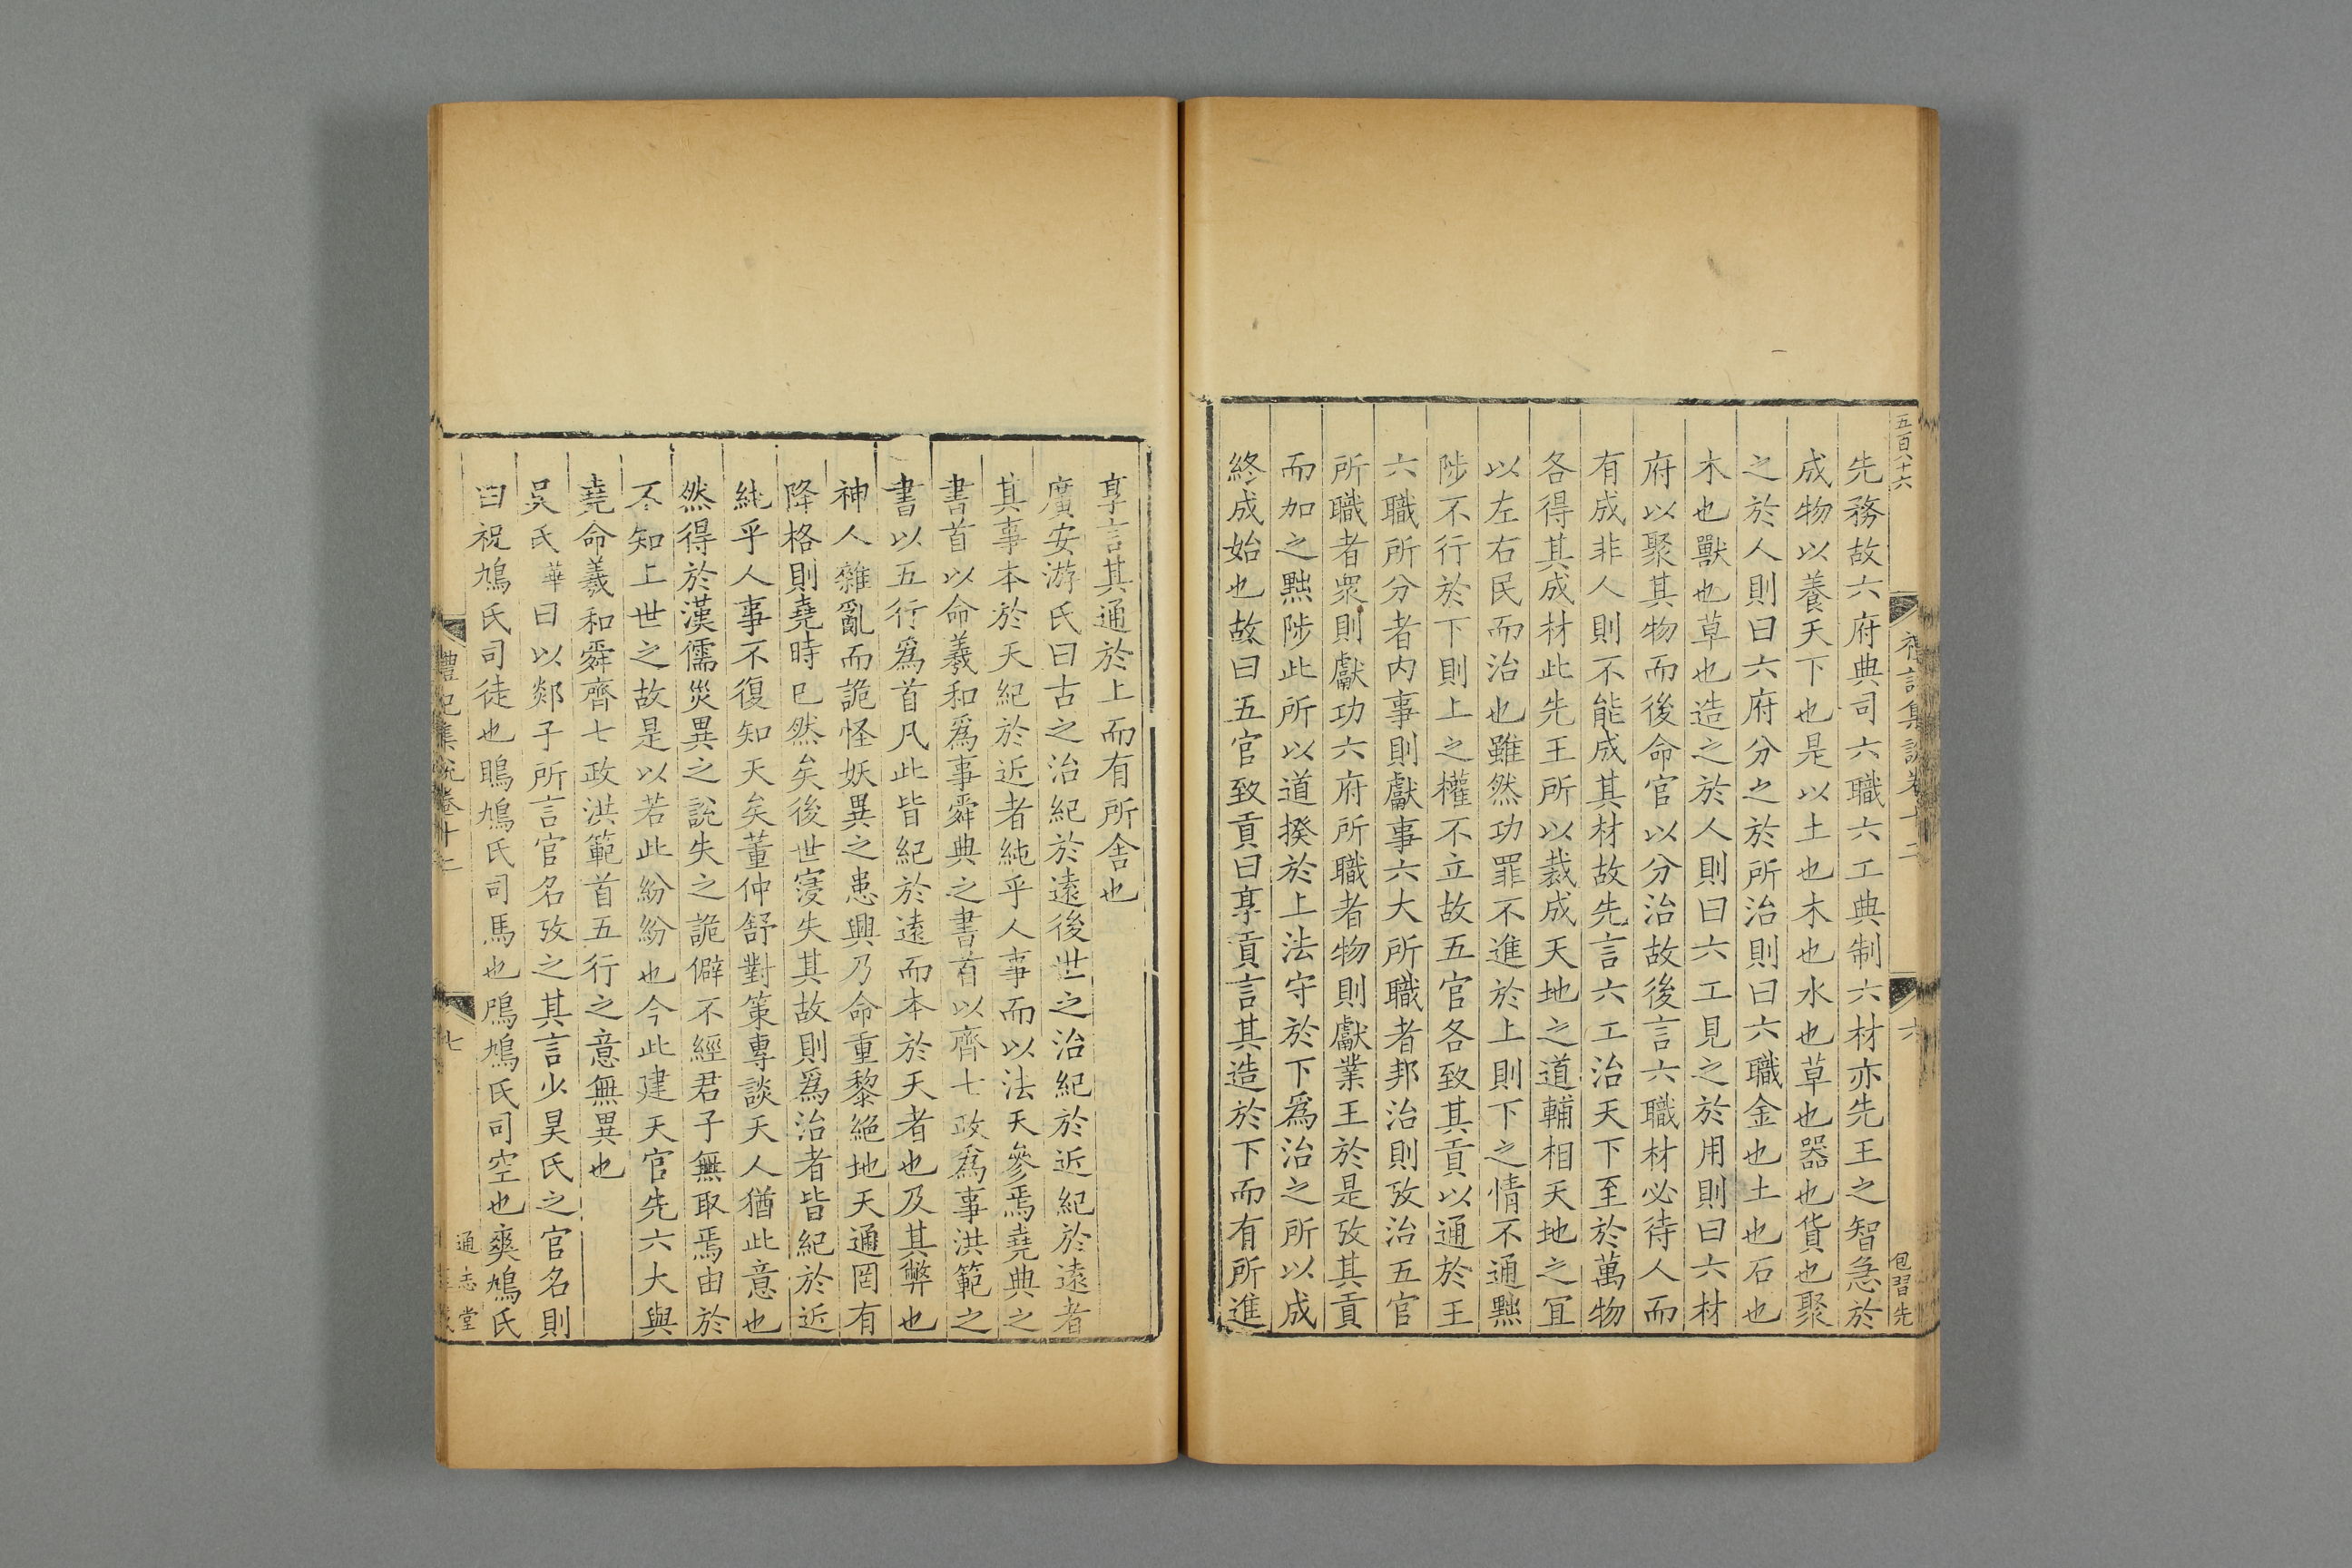 五百八十六
禮記集說卷十二
六
包習先
先務故六府典司六職六工典制六材亦先王之智急於
成物以養天下也是以土也木也水也草也器也貨也聚
之於人則曰六府分之於所治則曰六職金也土也石也
木也獸也草也造之於人則曰六工見之於用則曰六材
府以聚其物而後命官以分治故後言六職材必待人而
有成非人則不能成其材故先言六工治天下至於萬物
各得其成材此先王所以裁成天地之道輔相天地之宜
以左右民而治也雖然功罪不進於上則下之情不通黜
陟不行於下則上之權不立故五官各致其貢以通於王
六職所分者內事則獻事六大所職者邦治則攷治五官
所職者衆則獻功六府所職者物則獻業王於是攷其貢
而加之黜陟此所以道揆於上法守於下爲治之所以成
終成始也故曰五官致貢曰享貢言其造於下而有所進
享言其通於上而有所舍也
廣安游氏曰古之治紀於遠後世之治紀於近紀於遠者
其事本於天紀於近者純乎人事而以法天參焉堯典之
書首以命羲和爲事舜典之書首以齊七政爲事洪範之
書以五行爲首凡此皆紀於遠而本於天者也及其弊也
神人雜亂而詭怪妖異之患興乃命重黎絶地天通罔有
降格則堯時已然矣後世寖失其故則爲治者皆紀於近
純乎人事不復知天矣董仲舒對策專談天人猶此意也
然得於漢儒災異之說失之詭僻不經君子無取焉由於
不知上世之故是以若此紛紛也今此建天官先六大與
堯命羲和舜齊七政洪範首五行之意無異也
吳氏華曰以郯子所言官名攷之其言少昊氏之官名則
曰祝鳩氏司徒也鴡鳩氏司馬也鳲鳩氏司空也爽鳩氏
禮記集說卷十二
七
通志堂